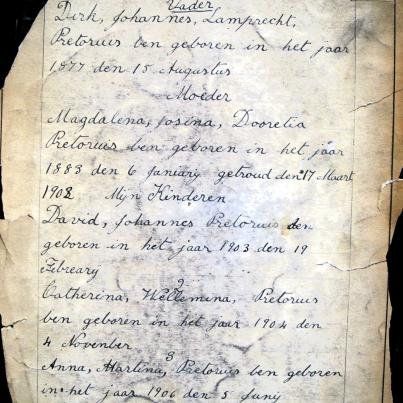 Vader
Dirk, Johannes, Lamprecht,
Pretorius ben geboren in het jaar
1877 den 15 Augustus
Moeder
Magdalena, Josina, Dooretia
Pretorius ben geboren in het jaar
1883 den 6 Januarij getroud den 17 Maart
1902 Mijn Kinderen
David, Johannes Pretorius den
geboren in het jaar 1903 den 19
Febreary
2
Catherina, Wellemina, Pretorius
ben geboren in het jaar 1904 den
4 November
3
Anna, Martina, Pretorius ben geboren
in het jaar 1906 den 5 Junij